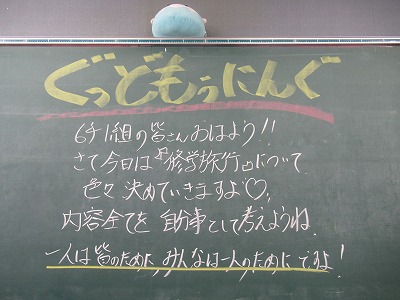 ぐっどもぅにんぐ
6年1組の皆さんおはよう!!
さて今日は『修学旅行』について
色々決めていきますよ♡。
内容全てを自分事として考えようね。
一人は皆のために みんなは一人のために ですよ!